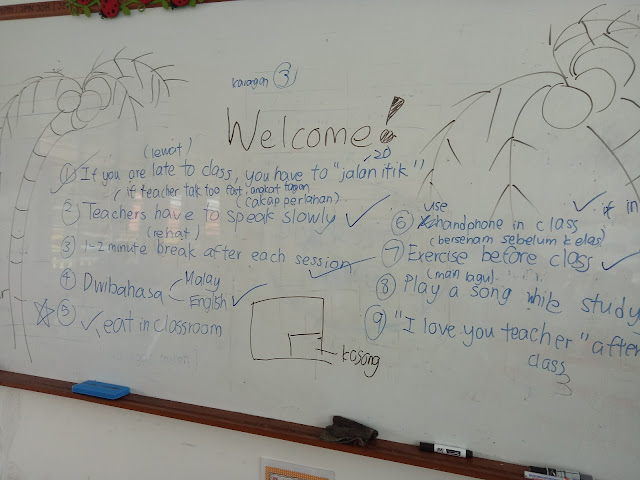 karangan ③
Welcome!
(lewat)
① If you are late to class, you have to "jalan itik"
20
(if teacher tak too fat, angkat tangan
(cakap perlahan)
② Teachers have to speak slowly ✓
(rehat)
③ 1-2 minute break after each session ✓
④ Dwibahasa < Malay
English ✓
☆⑤ ✓ eat in classroom
kosong
use
⑥ handphone in class ✓
* in
(bersenam sebelum kelas)
⑦ Exercise before class ✓
(main lagu)
⑧ Play a song while study
⑨ "I love you teacher" after
class
3